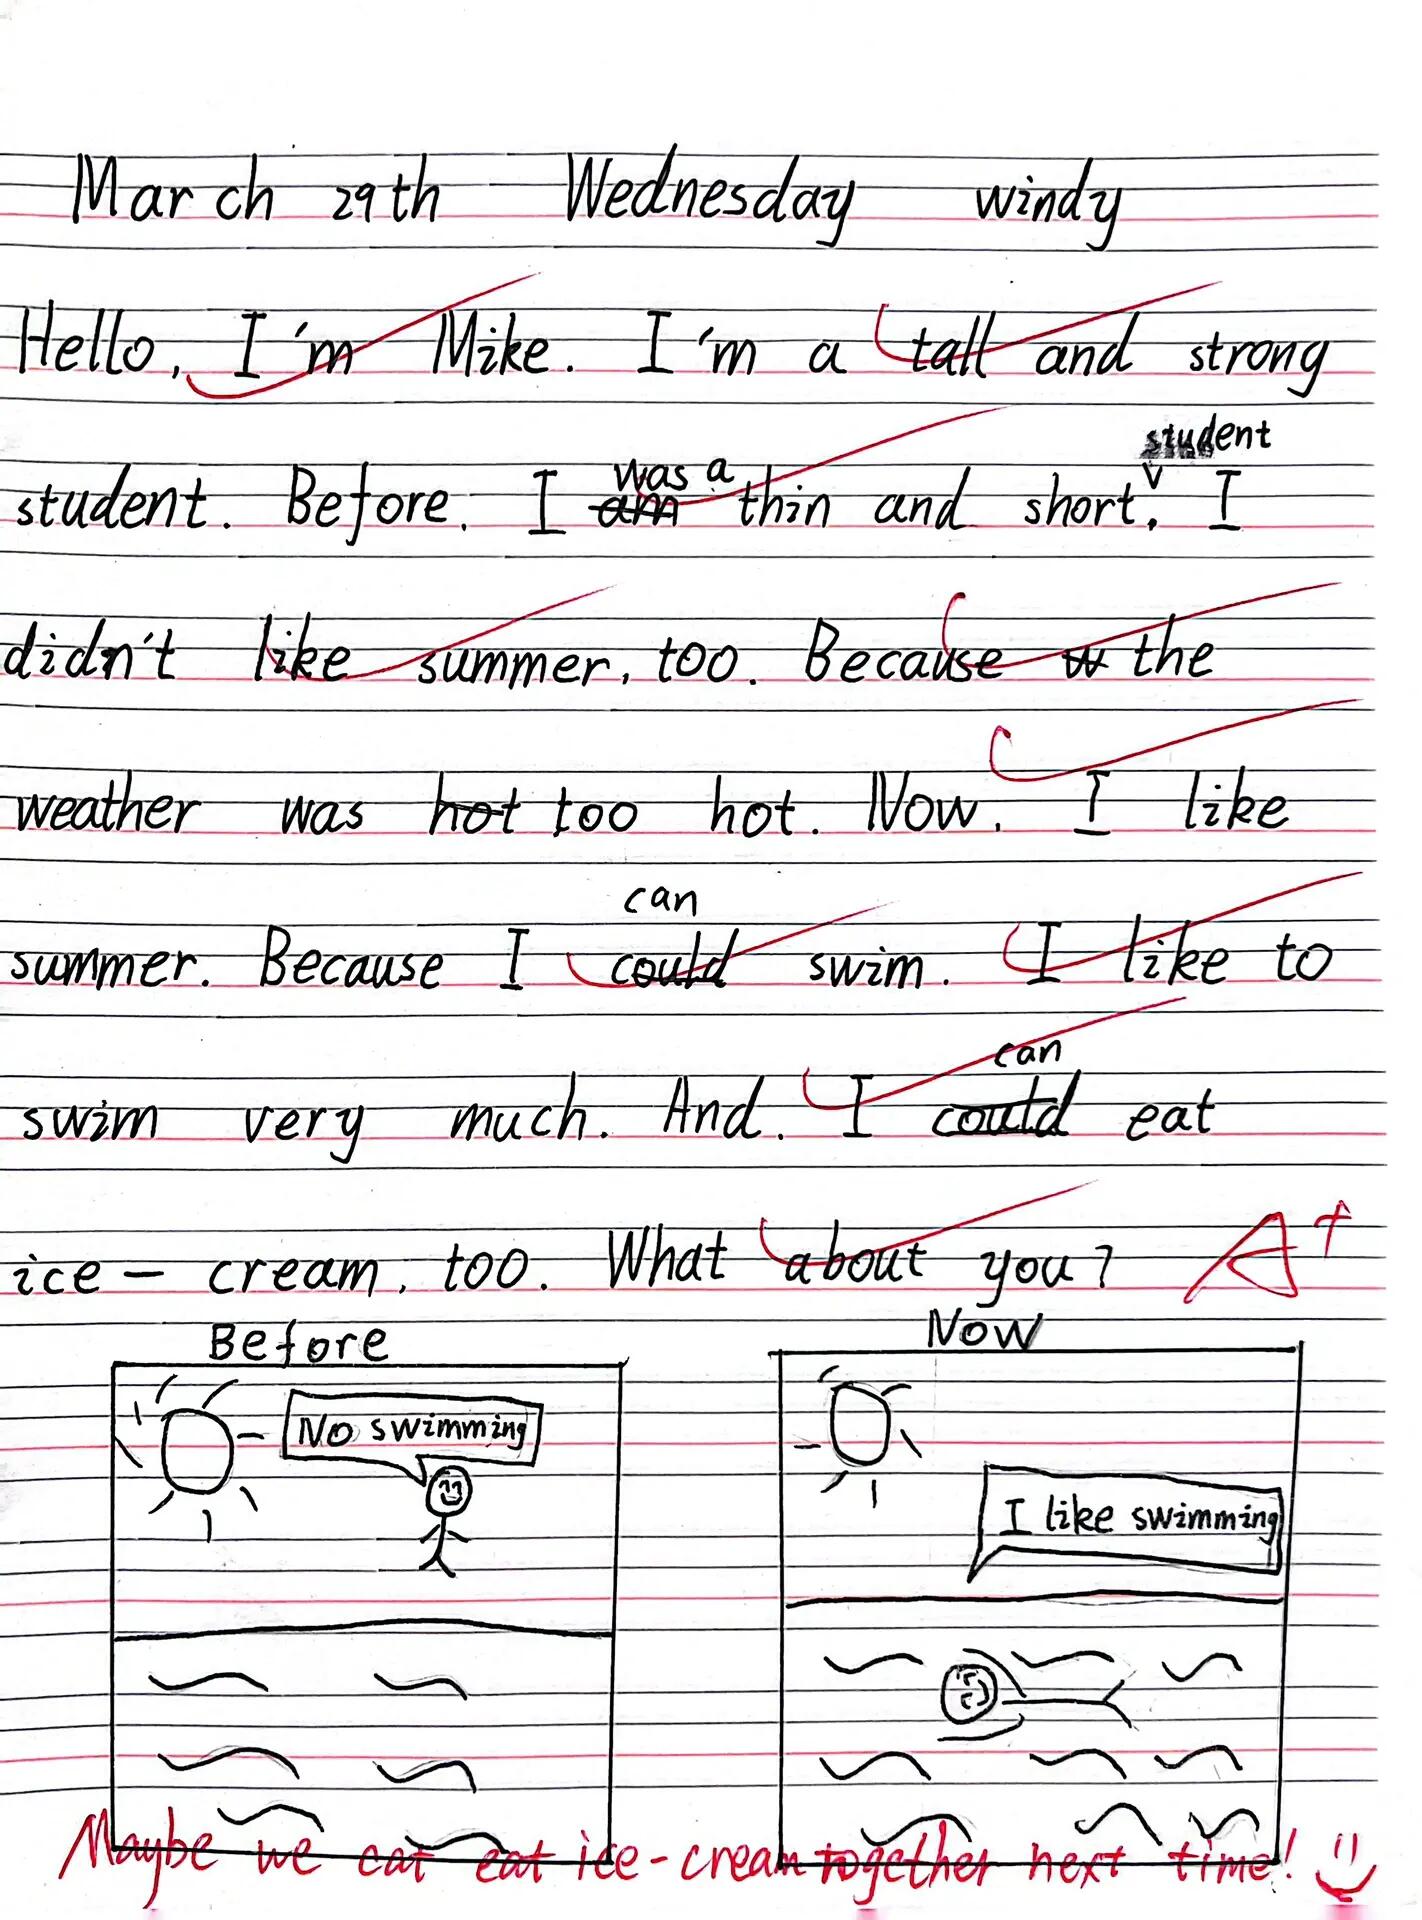 March 29th Wednesday windy
Hello, I'm Mike. I'm a tall and strong
student
was a
student. Before, I am thin and short. I
didn't like summer, too. Because w the
weather was hot too hot. Now, I like
can
summer. Because I could swim. I like to
can
swim very much. And, I could eat
ice - cream, too. What about you? A+
Before
Now
No swimming
I like swimming
Maybe we cat eat ice-cream together next time!